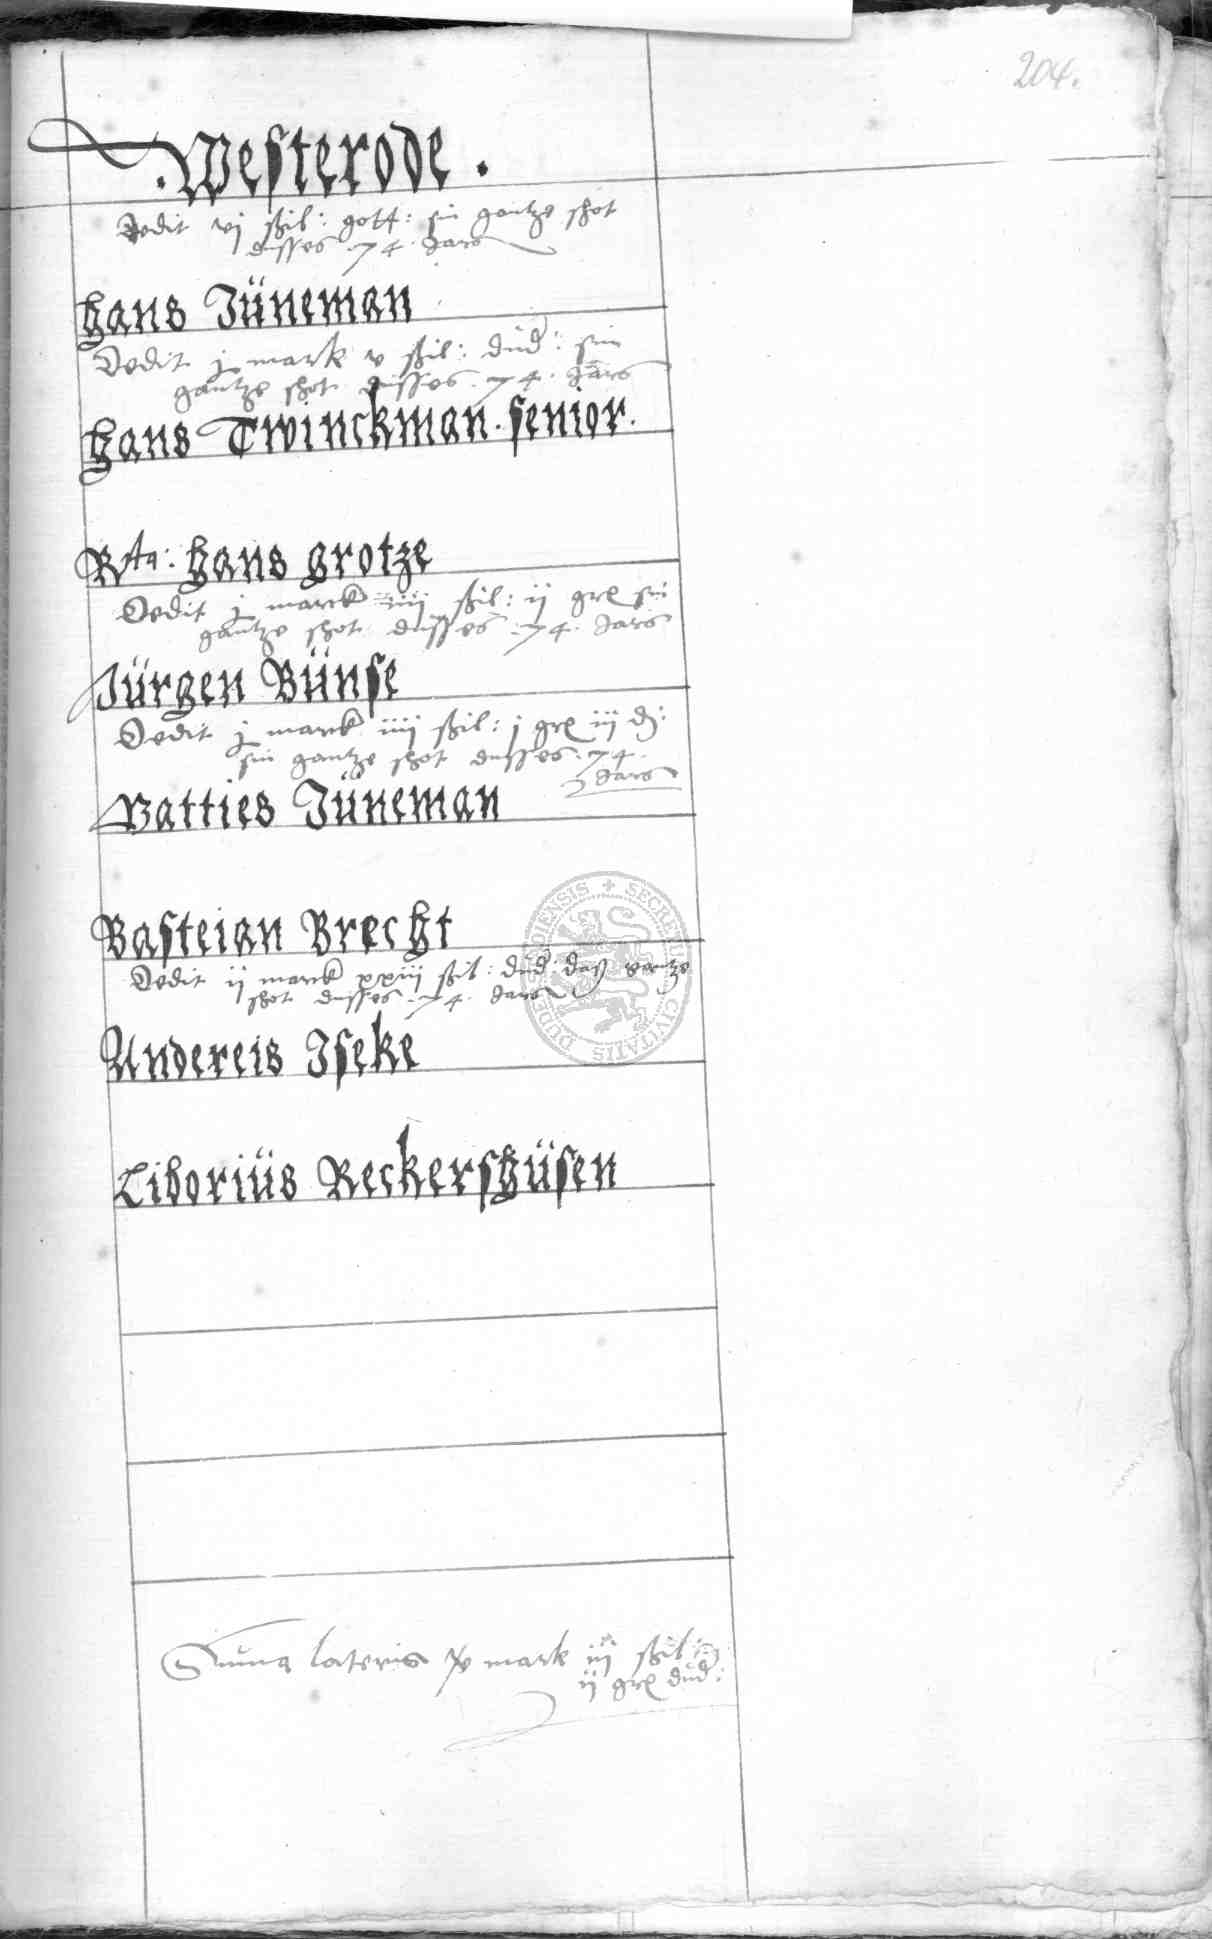 204.
. Westerode .
Dedit vj ßzil: gott: sin gantze shot
dusses . 74 . Jars
Hans Jüneman
Dedit j mark v ßzil: dud: sin
gantze shot dusses . 74 . Jars
Hans Twinckman . senior .
Rta: Hans Grotze
Dedit j marck iiij ßzil: ij gr sin
gantze shot dusses . 74 . Jars
Jürgen Bünse
Dedit j marck iiij ßzil: j gr iij d:
sin gantze shot dusses . 74 .
Jars
Matties Jüneman
Basteian Brecht
Dedit ij marck xxiij ßzil: dud: gantze
shot dusses . 74 . Jars
Andereis Iseke
Liboriüs Reckershüsen
Suma lateris mark iij ßzil:
ij gr dud:
SECRETUM CIVITATIS